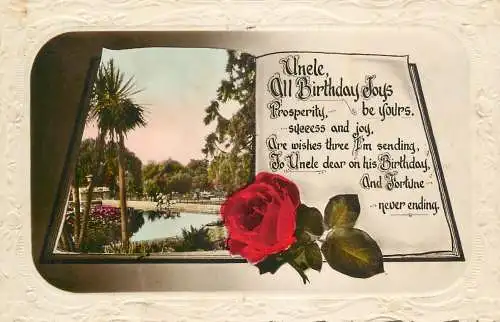 Uncle,
All Birthday Joys
Prosperity, be yours.
success and joy,
Are wishes three I'm sending,
To Uncle dear on his Birthday,
And Fortune
never ending.